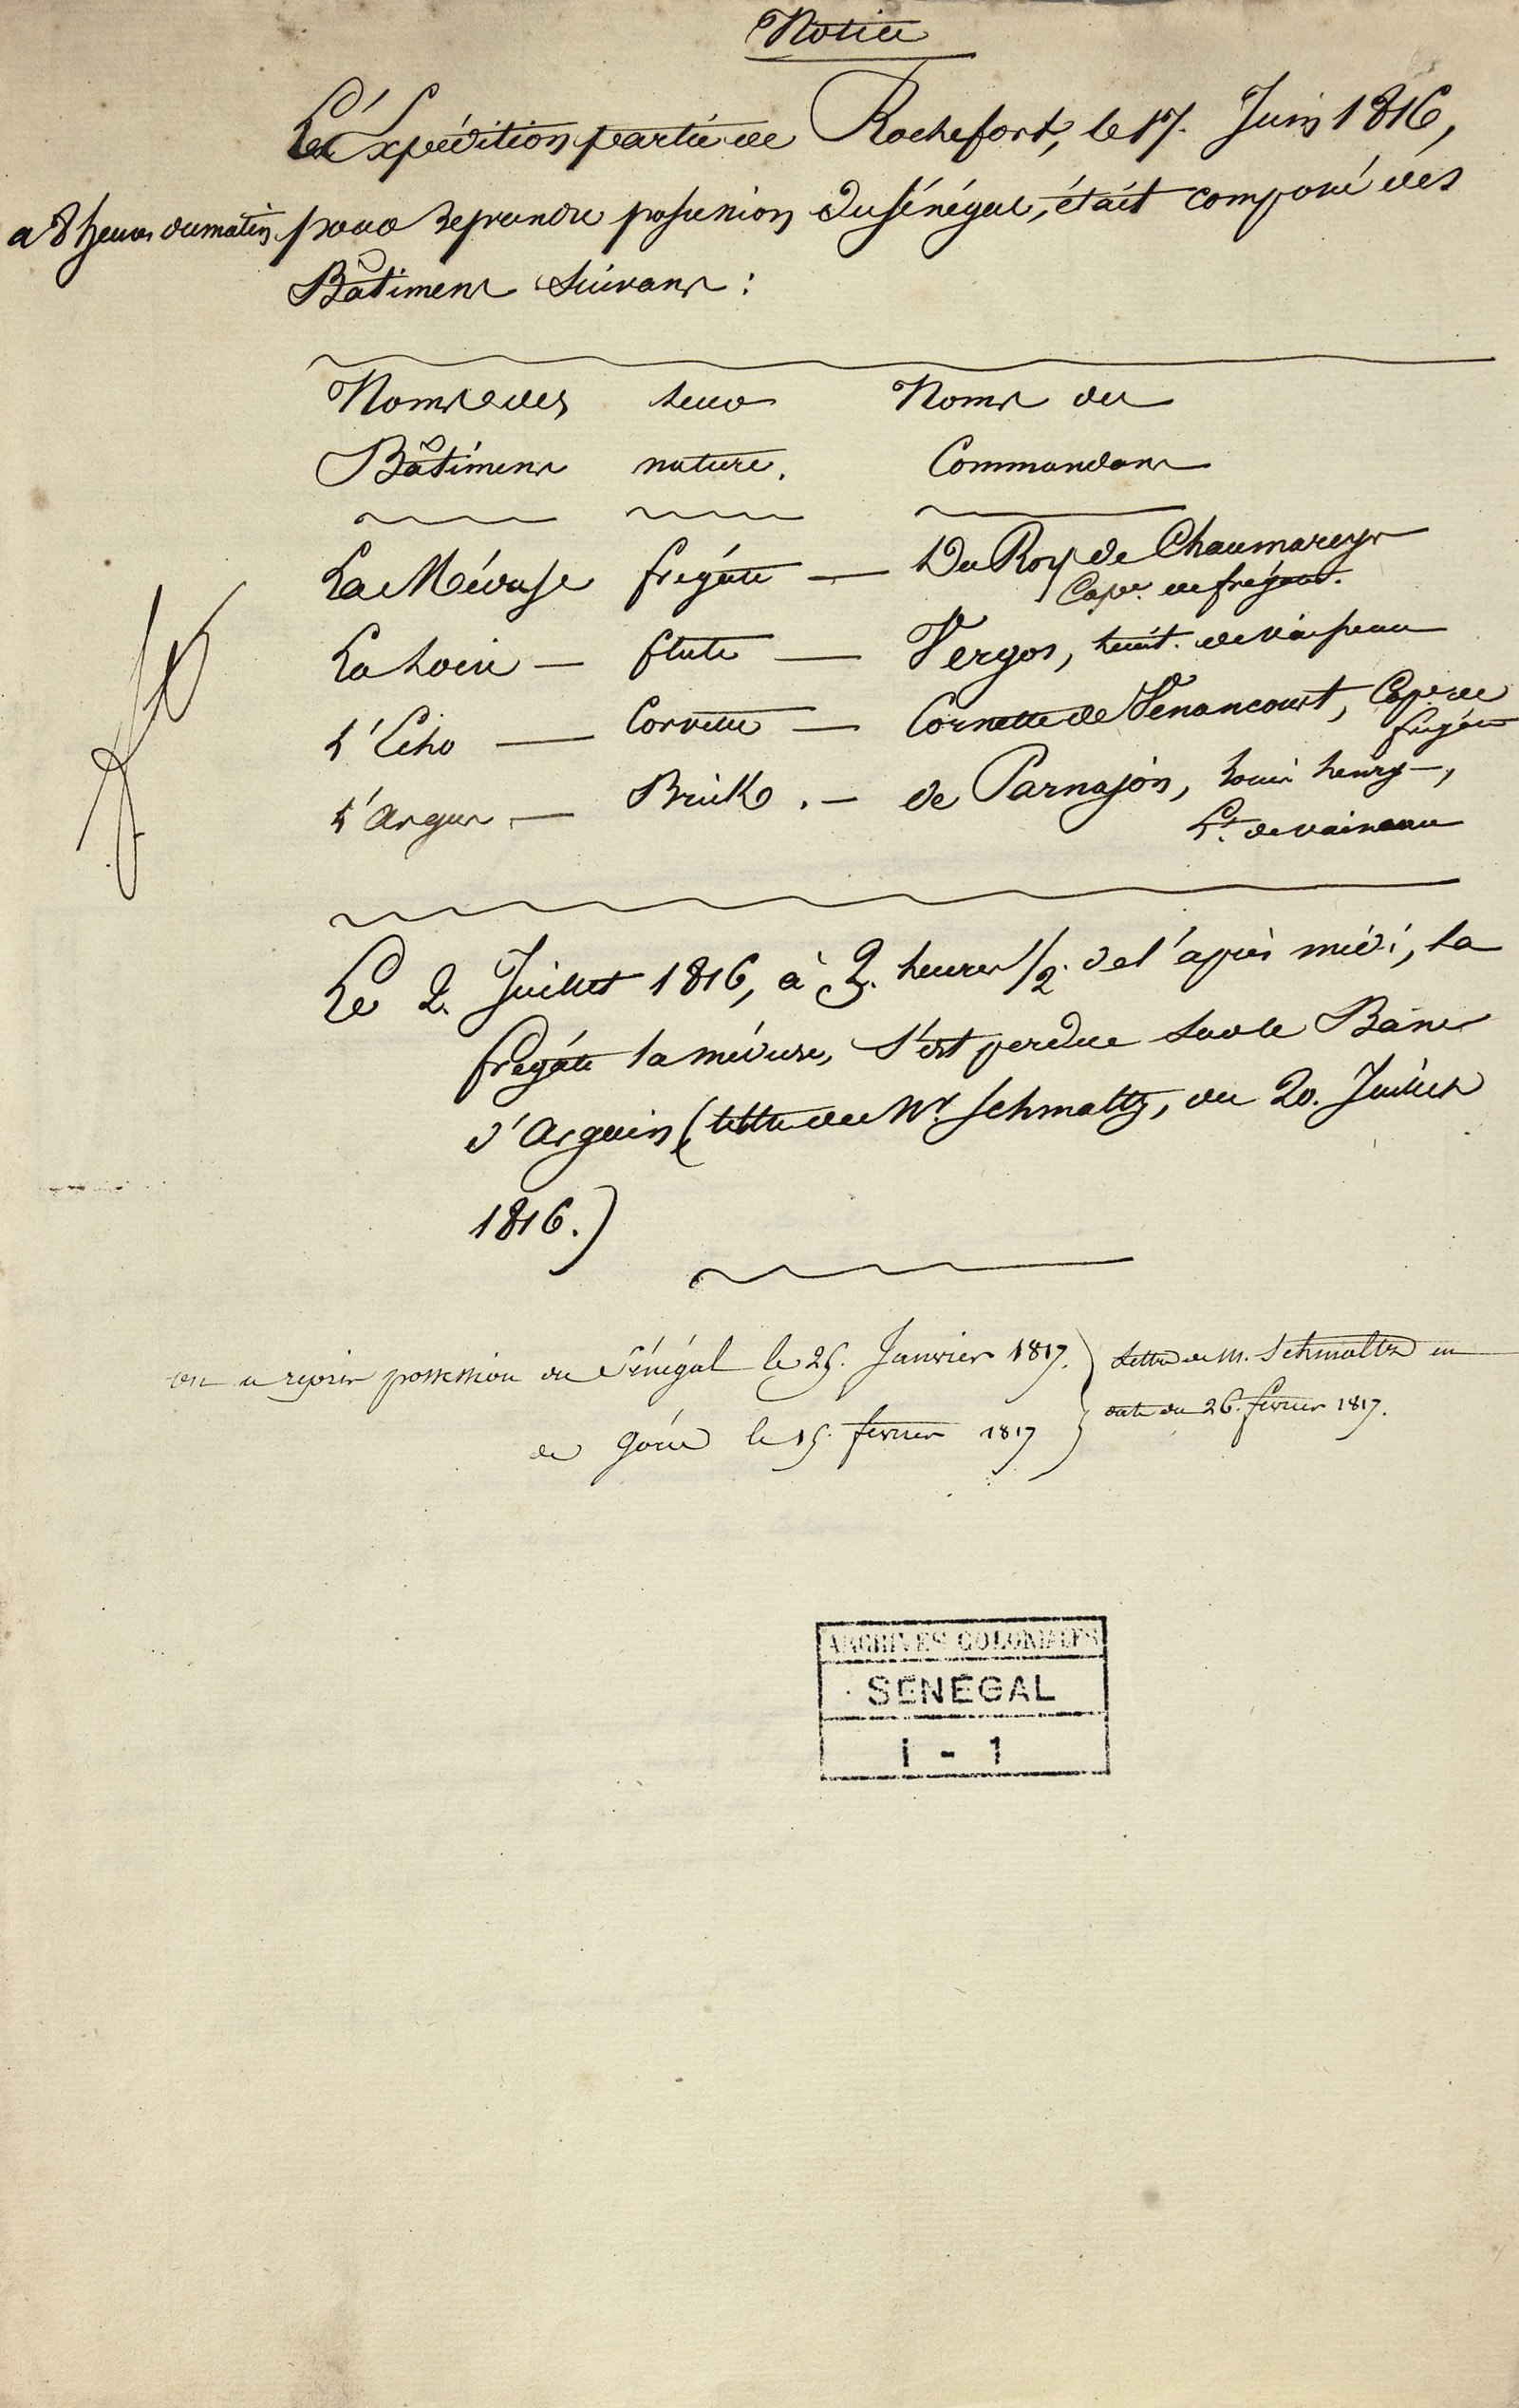 Notice
L'Expédition partie de Rochefort, le 17. Juin 1816,
a 8 heures du matin, pour reprendre possession du Sénégal, était composé des
Bâtimens Suivans :
Noms des leur Noms des
Bâtimens nature. Commandans
La Méduse frégate — Du Roy de Chaumareys
Capne. de frégate.
La Loire — flute — Vergos, lieut. de vaisseau
L'Echo — Corvette — Cornette de Vénancourt, Cape. de
frégate
L'Argus — Brick . — de Parnajon, Louis henry —,
Lt. de vaisseau
Le 2. Juillet 1816, à 3. heures 1/2. de l'après midi, la
frégate la méduse, s'est perdue sur le Banc
d'Arguin (lettre de Mr. Schmaltz, du 20. Juillet
1816.)
on a repris possession du Sénégal le 25. Janvier 1817. } Lettre de M. Schmaltz en
de Gorée le 15. fevrier 1817 } date du 26. fevrier 1817.
ARCHIVES COLONIALES
SENEGAL
I - 1